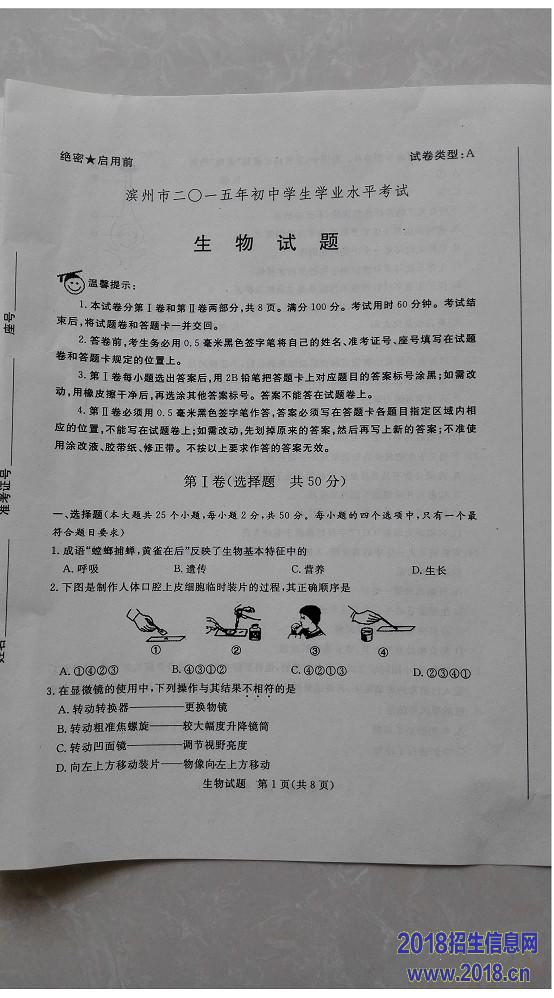 绝密★启用前
试卷类型:A
滨州市二〇一五年初中学生学业水平考试
生物试题
温馨提示:
1.本试卷分第Ⅰ卷和第Ⅱ卷两部分,共8页。满分100分。考试用时60分钟。考试结
束后,将试题卷和答题卡一并交回。
2.答卷前,考生务必用0.5毫米黑色签字笔将自己的姓名、准考证号、座号填写在试题
卷和答题卡规定的位置上。
3.第Ⅰ卷每小题选出答案后,用2B铅笔把答题卡上对应题目的答案标号涂黑;如需改
动,用橡皮擦干净后,再选涂其他答案标号。答案不能答在试题卷上。
4.第Ⅱ卷必须用0.5毫米黑色签字笔作答,答案必须写在答题卡各题目指定区域内相
应的位置,不能写在试题卷上;如需改动,先划掉原来的答案,然后再写上新的答案;不准使
用涂改液、胶带纸、修正带。不按以上要求作答的答案无效。
第Ⅰ卷(选择题 共50分)
一、选择题(本大题共25个小题,每小题2分,共50分。每小题的四个选项中,只有一个最
符合题目要求)
1.成语“螳螂捕蝉,黄雀在后”反映了生物基本特征中的
A.呼吸 B.遗传 C.营养 D.生长
2.下图是制作人体口腔上皮细胞临时装片的过程,其正确顺序是
① ② ③ ④
A.①④②③ B.④③①② C.④②①③ D.②③④①
3.在显微镜的使用中,下列操作与其结果不相符的是
A.转动转换器————更换物镜
B.转动粗准焦螺旋——较大幅度升降镜筒
C.转动凹面镜————调节视野亮度
D.向左上方移动装片——物像向左上方移动
生物试题 第1页(共8页)
座号
准考证号
姓名
2018招生信息网
www.2018.cn